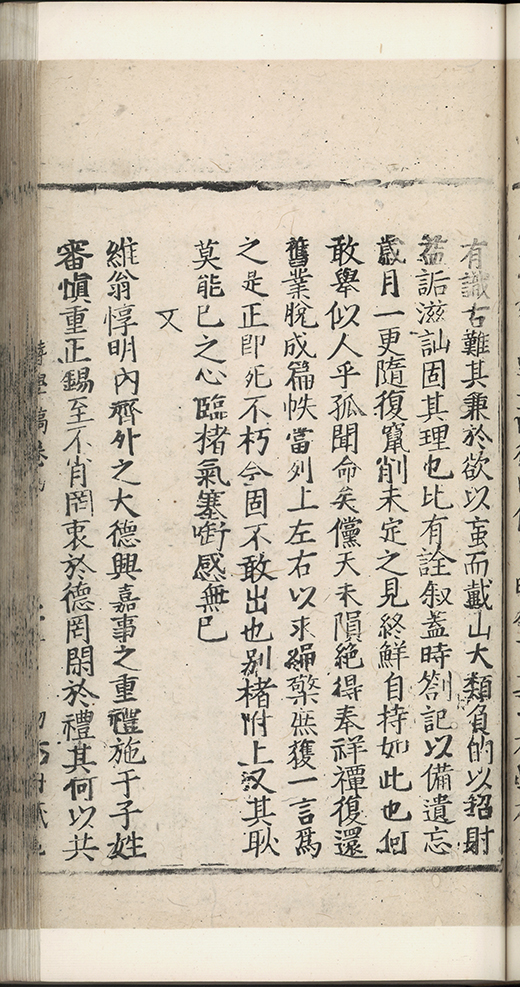 有識右難其兼於欲以蚉而戴山大類負的以招射
益詬滋訕固其理也比有詮敘蓋時劄記以備遺忘
歲月一更隨復竄削未定之見終鮮自持如此也何
敢舉似人乎孤聞命矣儻天未隕絕得奉祥禫復還
舊業脫成篇帙當列上左右以求繩檠庶獲一言爲
之是正卽死不朽今固不敢出也別楮附上又其耿
莫能已之心臨楮氣塞銜感無已
又
維翁惇明內齊外之大德興嘉事之重禮施于子姓
審愼重正錫至不肖罔衷於德罔閑於禮其何以共